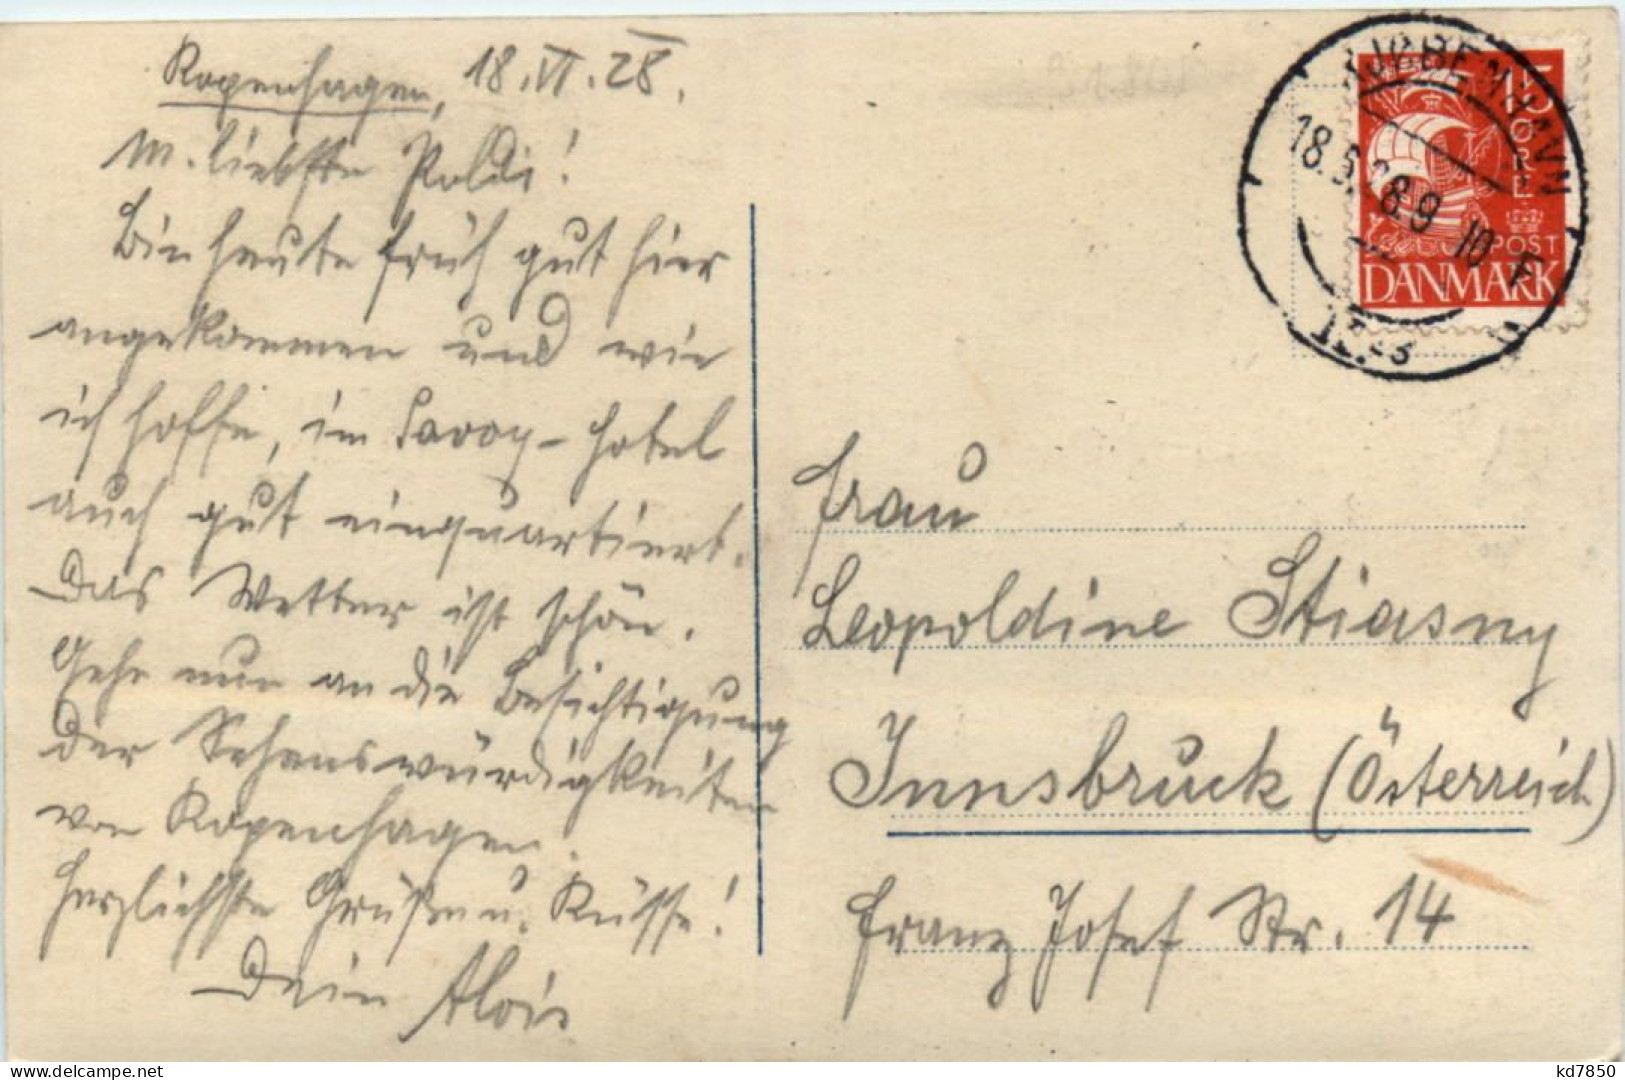 Kopenhagen, 18.VI.28.
M. liebste Poldi!
Bin heute früh gut hier
angekommen und wie
ich hoffe, im Savoy-Hotel
auch gut einquartiert.
Das Wetter ist schön.
Gehe nun an die Besichtigung
der Sehenswürdigkeiten
von Kopenhagen.
Herzlichste Grüße u. Küsse!
Dein Alois
KJØBENHAVN
18.6.28.9 10 F
15 ØRE
POST
DANMARK
Frau
Leopoldine Stiasny
Innsbruck (Österreich)
Franz Josef Str. 14
kd7850